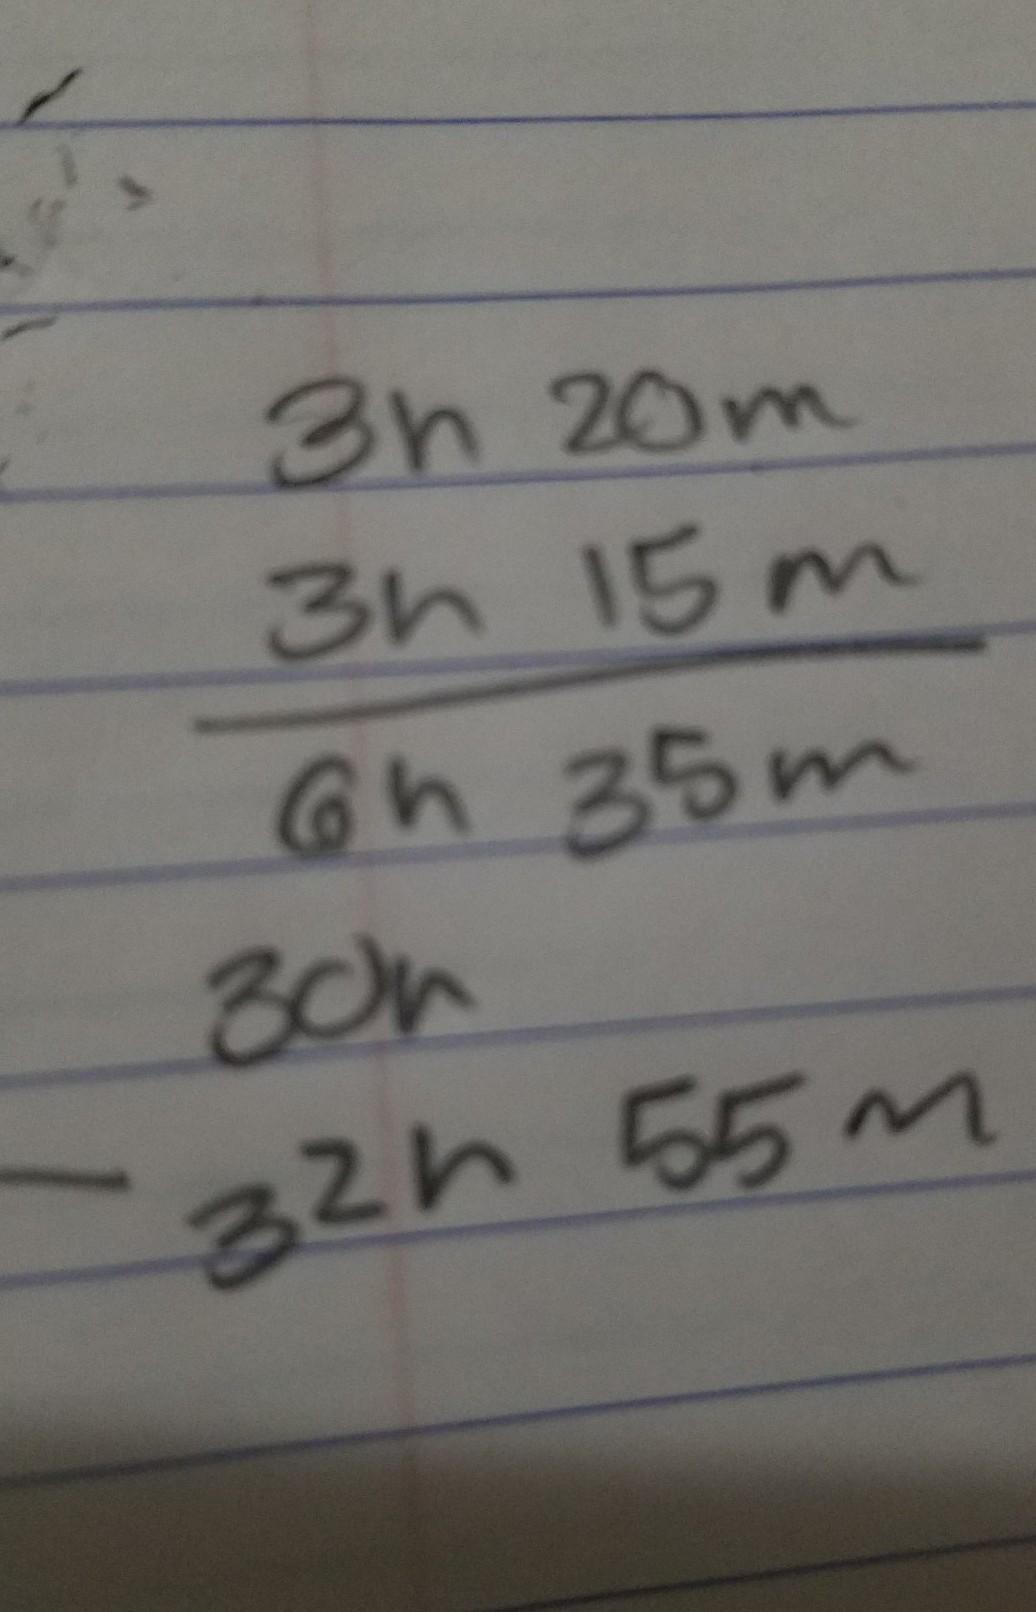 3h 20m
3h 15m
6h 35m
30h
— 32h 55m